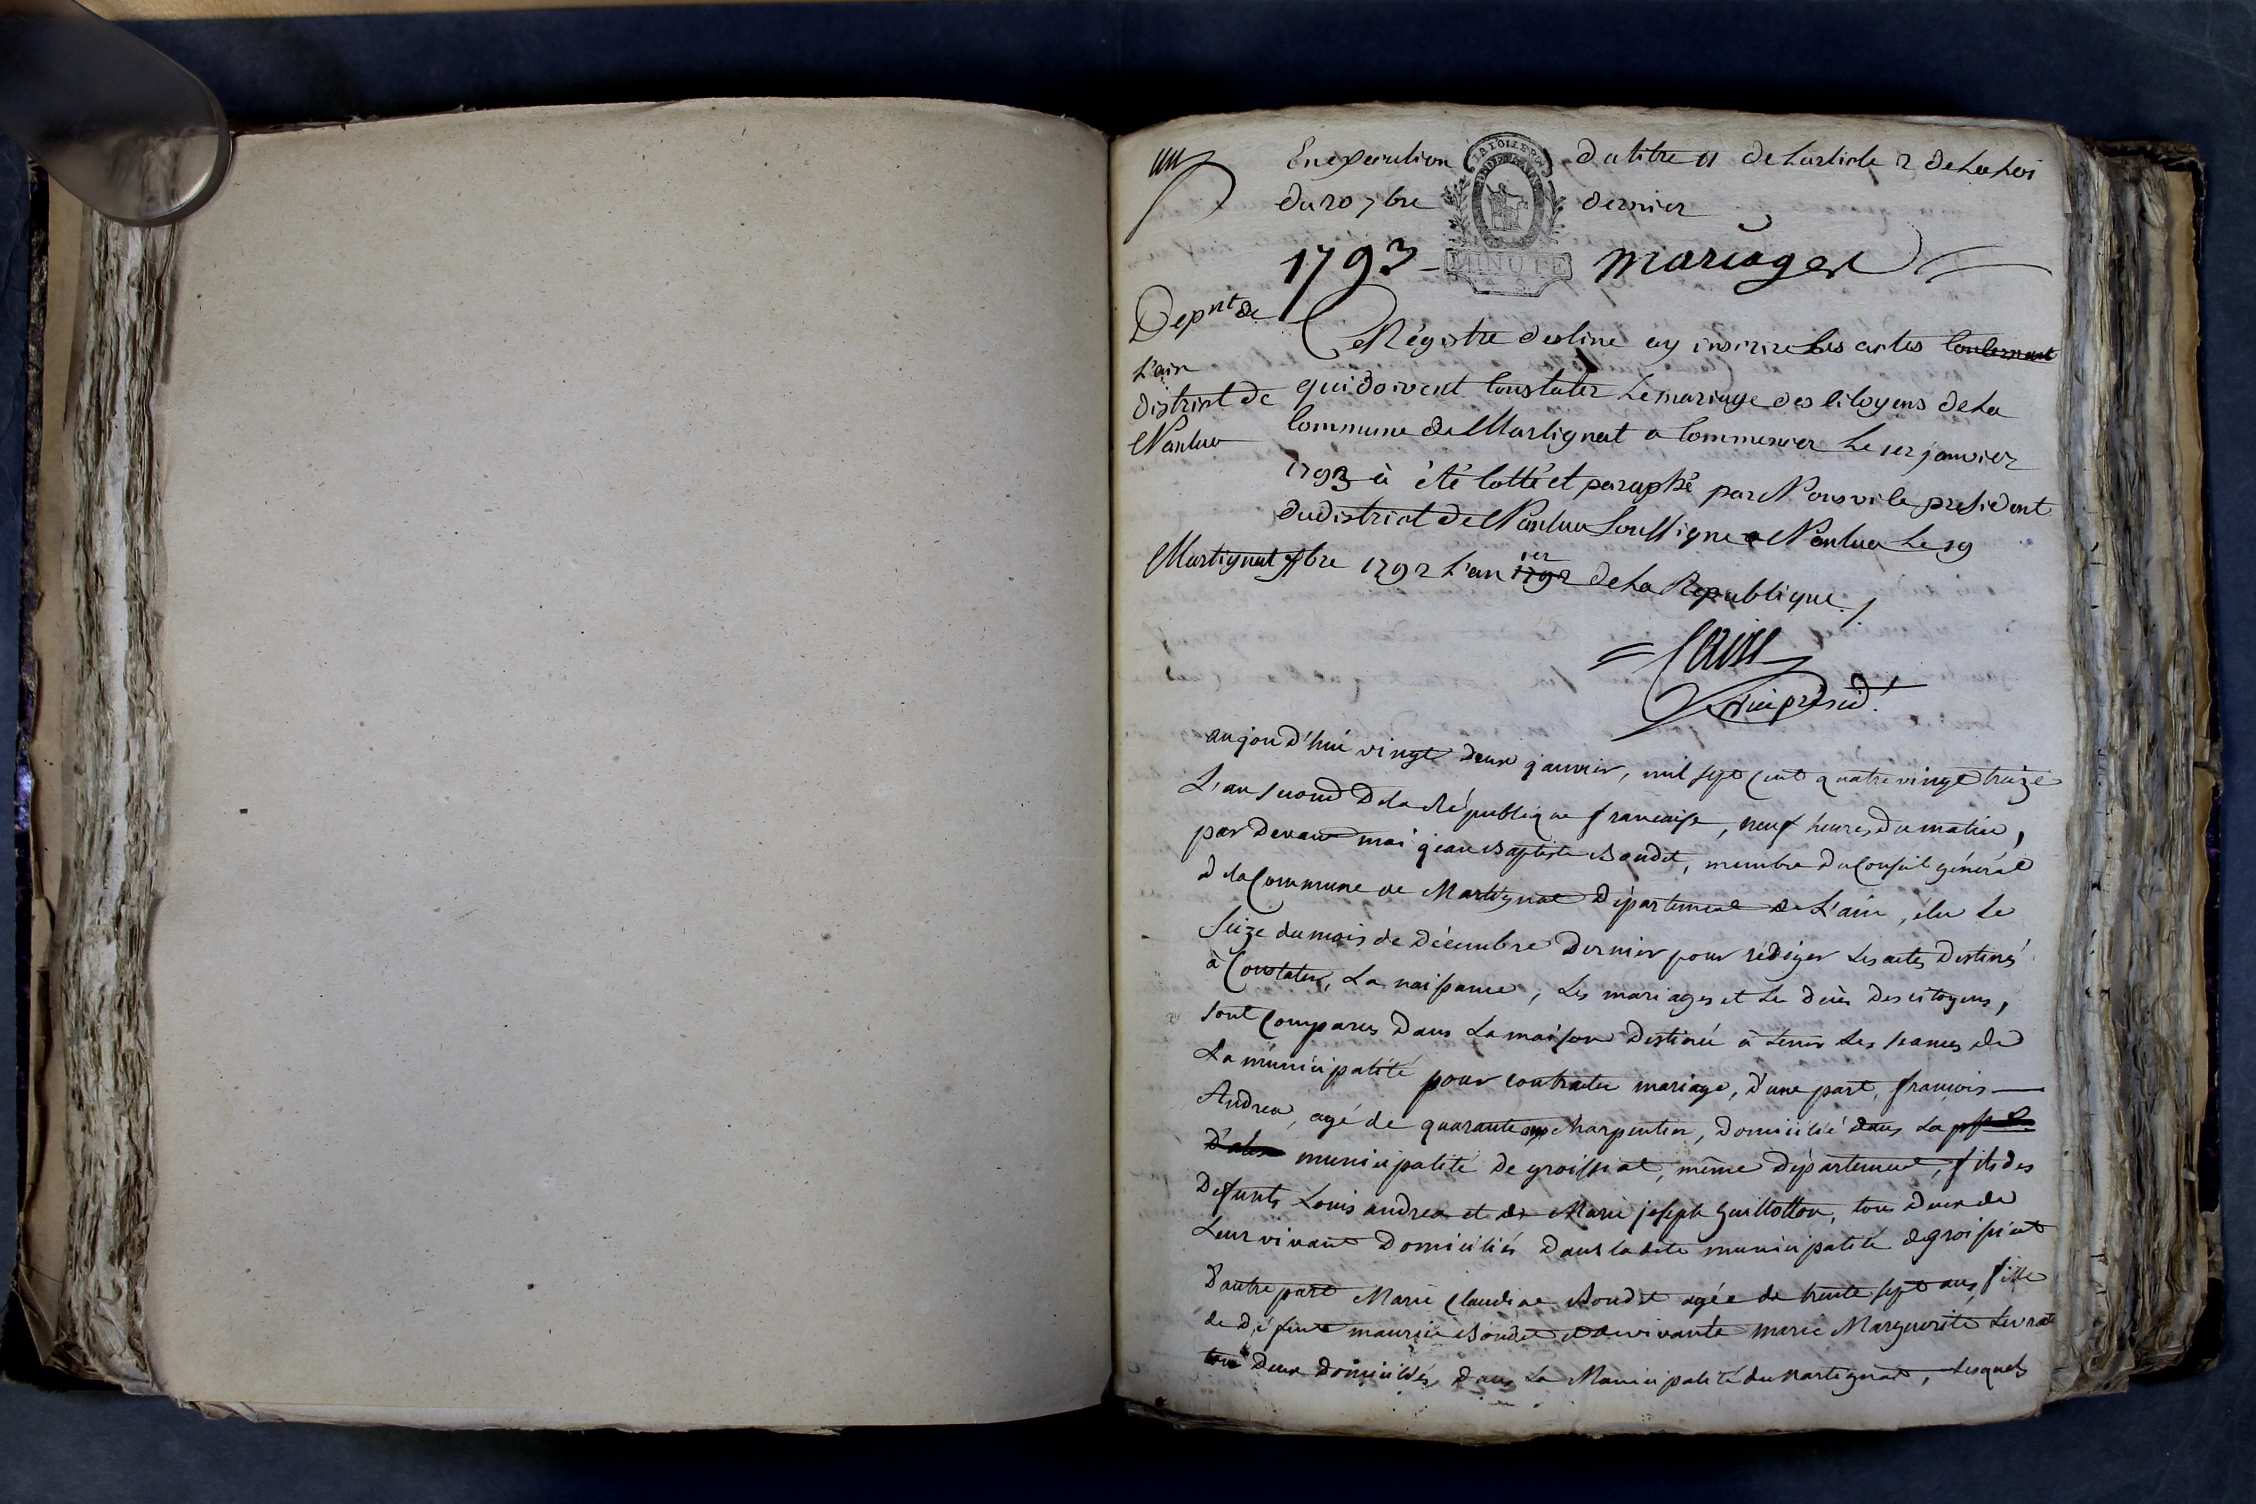 un
En execution du titre 11 de L'article 2 de La Loi
du 20 7bre dernier
LA LOI LE ROI
MINUTE
1793 mariages
Depnt de
L'ain
district de
Nantua
Martignat
Régistre destiné ay inscrire Les actes Concernant
qui doivent Constater Le mariage des Citoyens de La
Commune de Martignat a Commencer Le 1er janvier
1793 à été Cotté et paraphé par Nous vice president
du district de Nantua Soussigné a Nantua Le 19
9bre 1792 L'an 1792 1er de La Republique
vice présid.t
aujourd'hui vingt deux janvier, mil sept Cent quatre vingt treize
L'an second de la République francaise, neuf heures du matin,
par devant moi jean Baptiste Boudet, membre du Conseil général
de la Commune de Martignat Département de L'ain, élu le
Seize du mois de Décembre Dernier pour rédiger Les actes Destinés
à Constater, La naissance, Les mariages et Le décès Des citoyens,
sont Comparus Dans La maison Destinée à tenir Les seances de
La municipalité pour contracter mariage, D'une part, francois
Andrea, agé de quarante ans charpentier, Domicilié dans La
municipalité de groissiat, même Département, fils des
Défunts Louis andrea et de Marie joseph Guillotton, tous Deux de
Leur vivant Domiciliés Dans la dite municipalité de groissiat
D'autre part Marie Claudine Boudet agée de trente sept ans, fille
de Défunt maurice Boudet et de vivante marie Marguerite Levrat
tous Deux Domiciliés, dans La Municipalité du Martignat, Lesquels